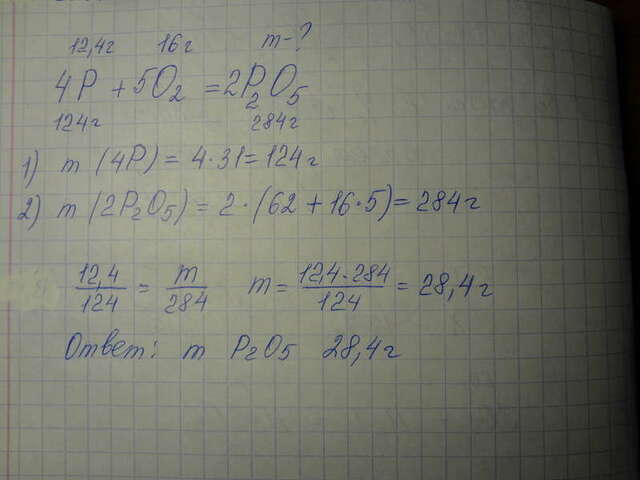 12,4г 16г m-?
4P + 5O2 = 2P2O5
124г 284г
1) m (4P) = 4·31 = 124г
2) m (2P2O5) = 2·(62 + 16·5) = 284г
12,4/124 = m/284 m = 12,4·284/124 = 28,4г
Ответ: m P2O5 28,4г